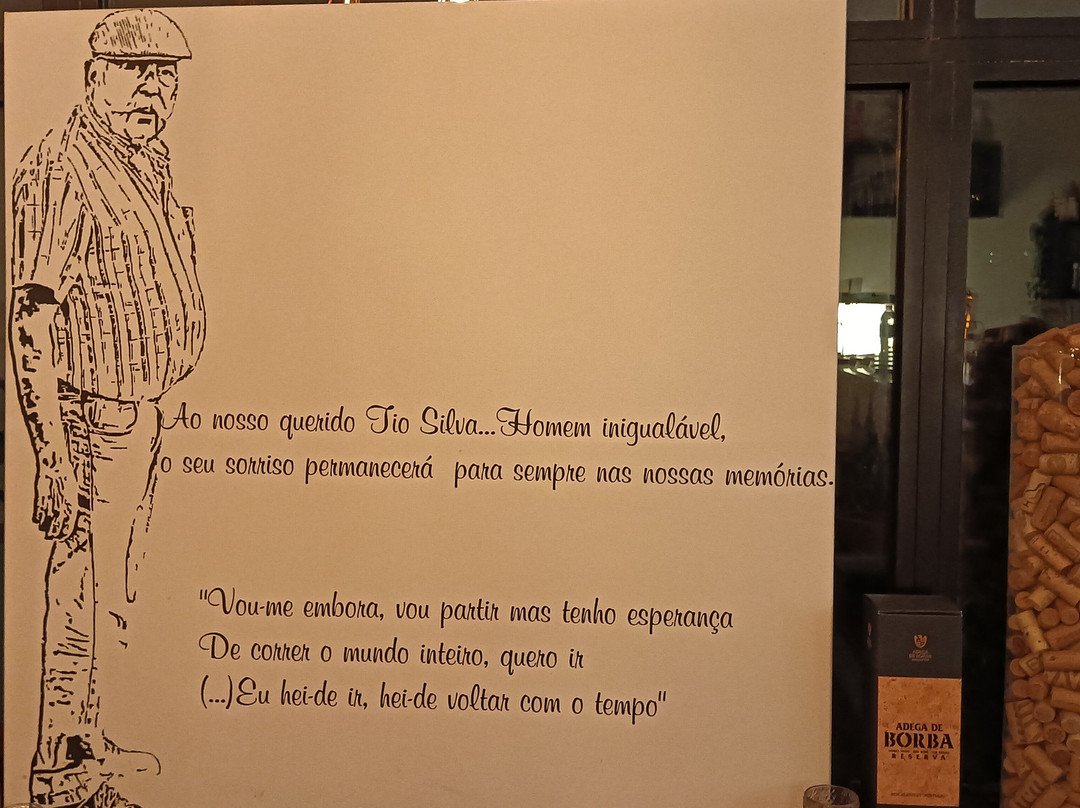 Ao nosso querido Tio Silva...Homem inigualável,
o seu sorriso permanecerá para sempre nas nossas memórias.
"Vou-me embora, vou partir mas tenho esperança
De correr o mundo inteiro, quero ir
(...)Eu hei-de ir, hei-de voltar com o tempo"
ADEGA DE
BORBA
RESERVA